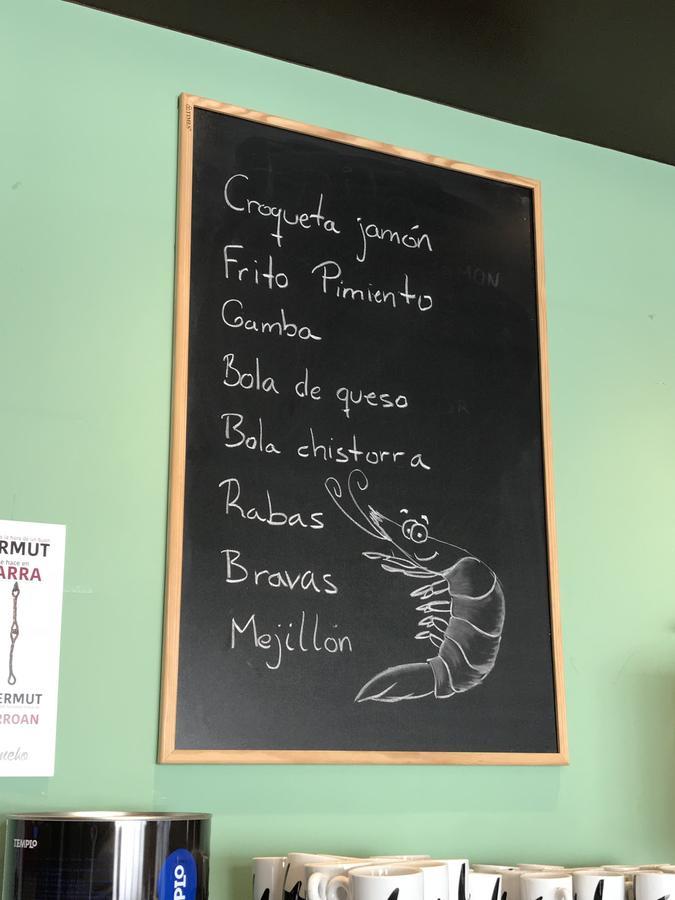 Croqueta jamón
Frito Pimiento
Gamba
Bola de queso
Bola chistorra
Rabas
Bravas
Mejillón
ERMUT
se hace en
ARRA
ERMUT
RROAN
TEMPLO
PLO